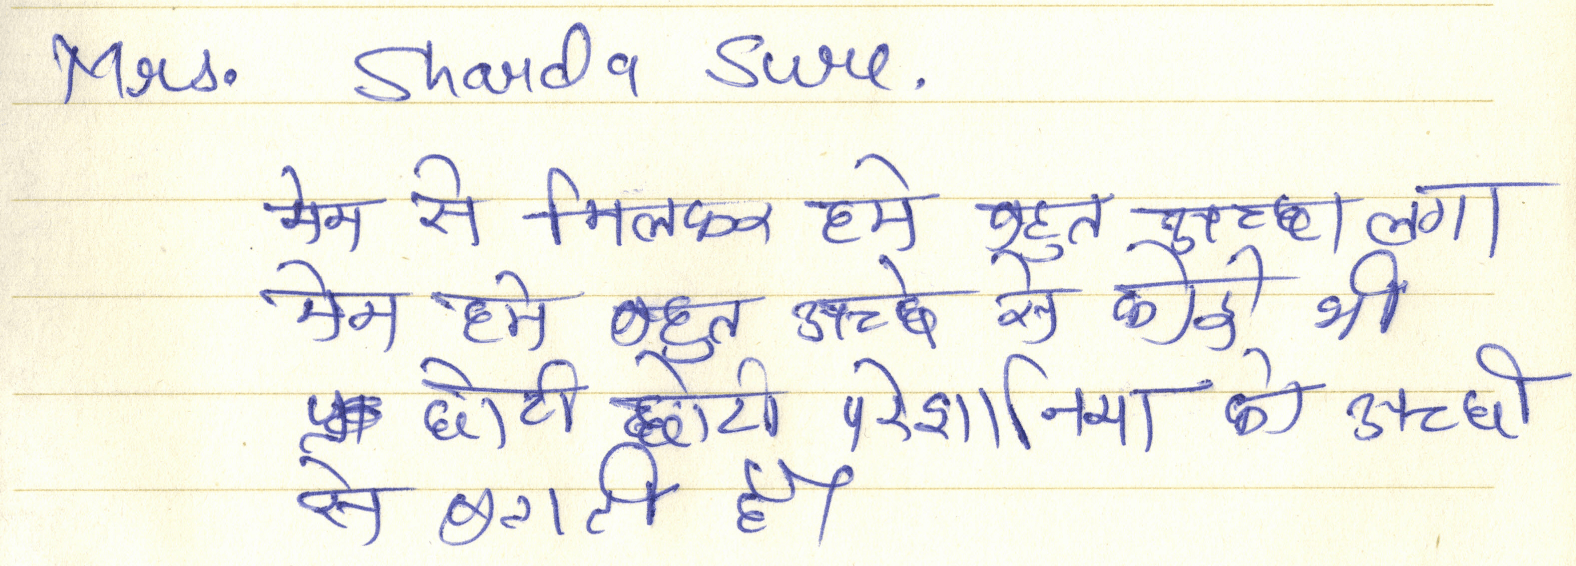 Mrs. Sharda Sure.
मेम से मिलकर हमे बहुत अच्छा लगा
मेम हमे बहुत अच्छे से कोई भी
छोटी छोटी परेशानिया को अच्छी
से बताती है।